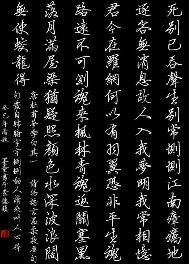 死別已吞聲生別常惻惻江南瘴癘地
逐客無消息故人入我夢明我常相憶
君今在羅網何以有羽翼恐非平生魂
路遠不可測魂來楓林青魂返關塞黑
落月滿屋梁猶疑照顏色水深波浪闊
無使蛟龍得